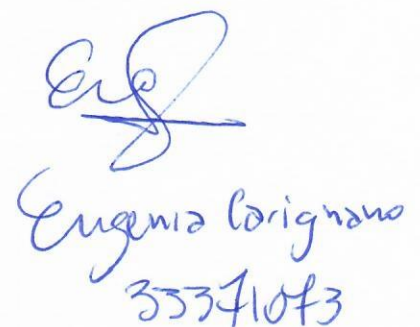 Eugenia Carignano
33371073